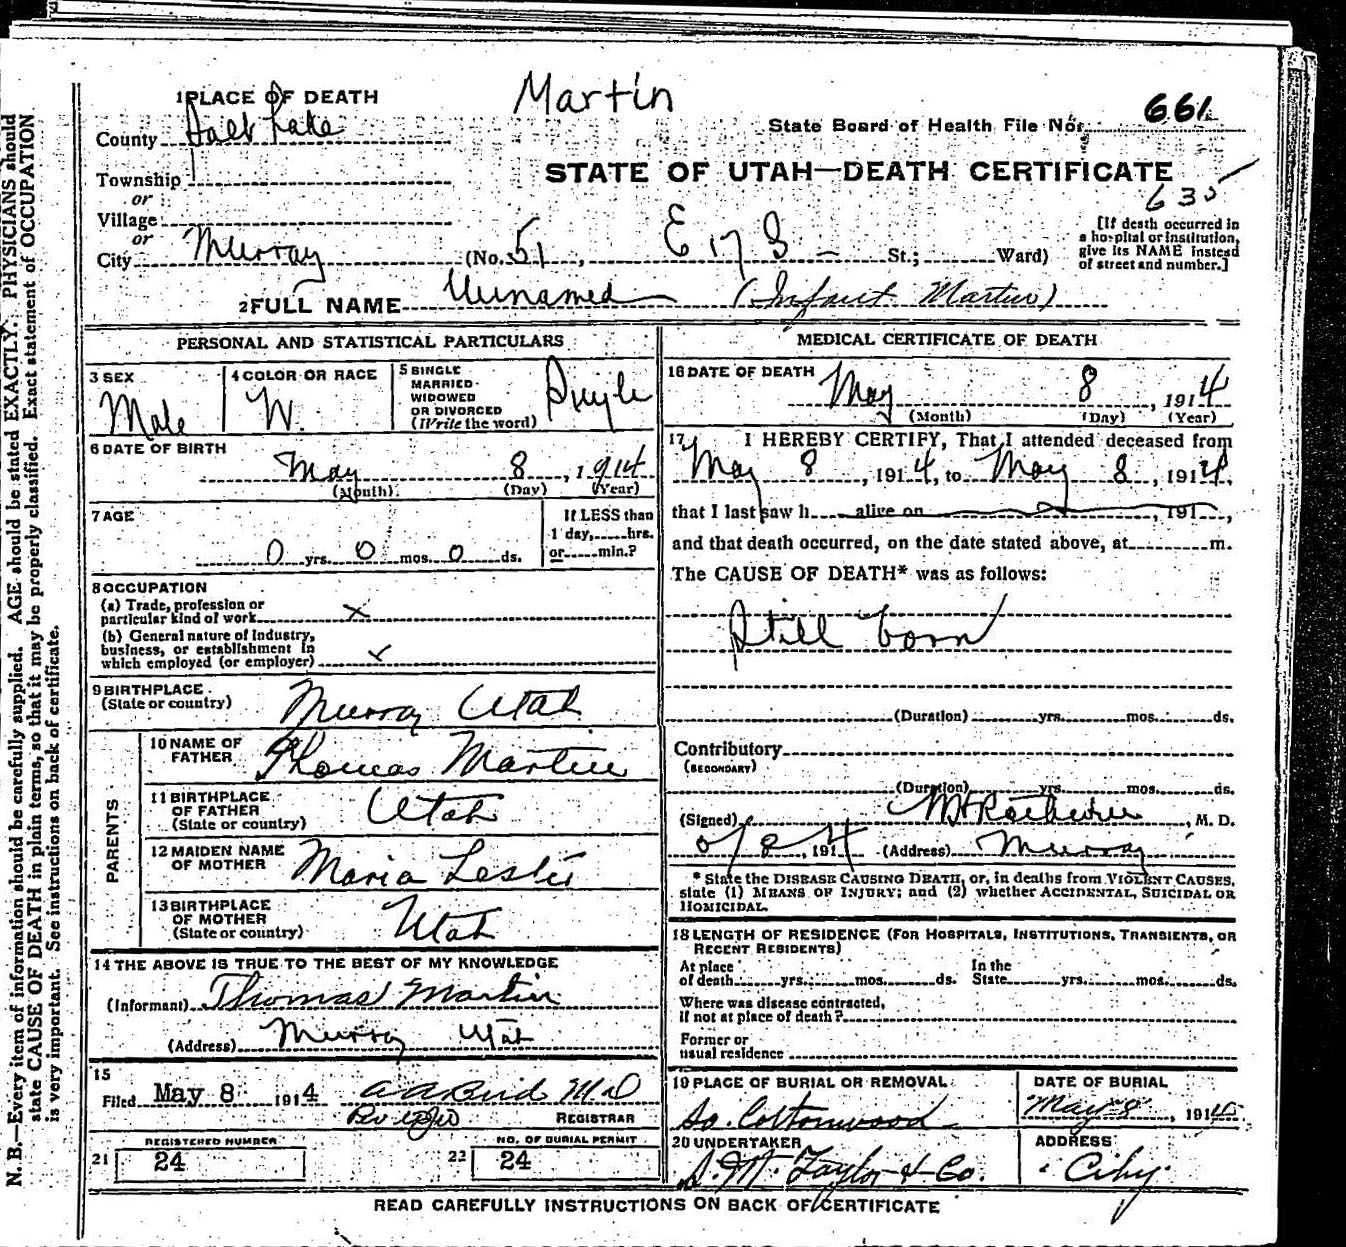 Martin
1 PLACE OF DEATH
661
County Salt Lake
State Board of Health File No.
STATE OF UTAH—DEATH CERTIFICATE
Township
or
635
Village
or
City Murray (No. 51, E 17 S — St.; Ward)
[If death occurred in
a hospital or institution,
give its NAME instead
of street and number.]
2 FULL NAME Unnamed (Infant Martin)
PERSONAL AND STATISTICAL PARTICULARS
3 SEX
Male
4 COLOR OR RACE
W.
5 SINGLE
MARRIED
WIDOWED
OR DIVORCED
(Write the word)
Single
6 DATE OF BIRTH
May 8, 1914
(Month) (Day) (Year)
7 AGE
0 yrs. 0 mos. 0 ds.
If LESS than
1 day, hrs.
or min.?
8 OCCUPATION
(a) Trade, profession or
particular kind of work x
(b) General nature of industry,
business, or establishment in
which employed (or employer) x
9 BIRTHPLACE
(State or country) Murray Utah
PARENTS
10 NAME OF
FATHER Thomas Martin
11 BIRTHPLACE
OF FATHER
(State or country) Utah
12 MAIDEN NAME
OF MOTHER Maria Lester
13 BIRTHPLACE
OF MOTHER
(State or country) Utah
14 THE ABOVE IS TRUE TO THE BEST OF MY KNOWLEDGE
(Informant) Thomas Martin
(Address) Murray Utah
15
Filed May 8 1914 A A Bird M D
REGISTRAR
REGISTERED NUMBER
21 24
NO. OF BURIAL PERMIT
22 24
MEDICAL CERTIFICATE OF DEATH
16 DATE OF DEATH
May 8, 1914
(Month) (Day) (Year)
17 I HEREBY CERTIFY, That I attended deceased from
May 8, 1914, to May 8, 1914,
that I last saw h alive on , 191 ,
and that death occurred, on the date stated above, at m.
The CAUSE OF DEATH* was as follows:
Still born
(Duration) yrs. mos. ds.
Contributory
(SECONDARY)
(Duration) yrs. mos. ds.
(Signed) , M. D.
5/8, 1914 (Address) Murray
* State the DISEASE CAUSING DEATH, or, in deaths from VIOLENT CAUSES,
state (1) MEANS OF INJURY; and (2) whether ACCIDENTAL, SUICIDAL OR
HOMICIDAL.
18 LENGTH OF RESIDENCE (FOR HOSPITALS, INSTITUTIONS, TRANSIENTS, OR
RECENT RESIDENTS)
At place
of death yrs. mos. ds.
In the
State yrs. mos. ds.
Where was disease contracted,
if not at place of death?
Former or
usual residence
19 PLACE OF BURIAL OR REMOVAL
So. Cottonwood
DATE OF BURIAL
May 8, 1914
20 UNDERTAKER
S. M. Taylor & Co.
ADDRESS
City
READ CAREFULLY INSTRUCTIONS ON BACK OF CERTIFICATE
N. B.—Every item of information should be carefully supplied. AGE should be stated EXACTLY. PHYSICIANS should
state CAUSE OF DEATH in plain terms, so that it may be properly classified. Exact statement of OCCUPATION
is very important. See instructions on back of certificate.